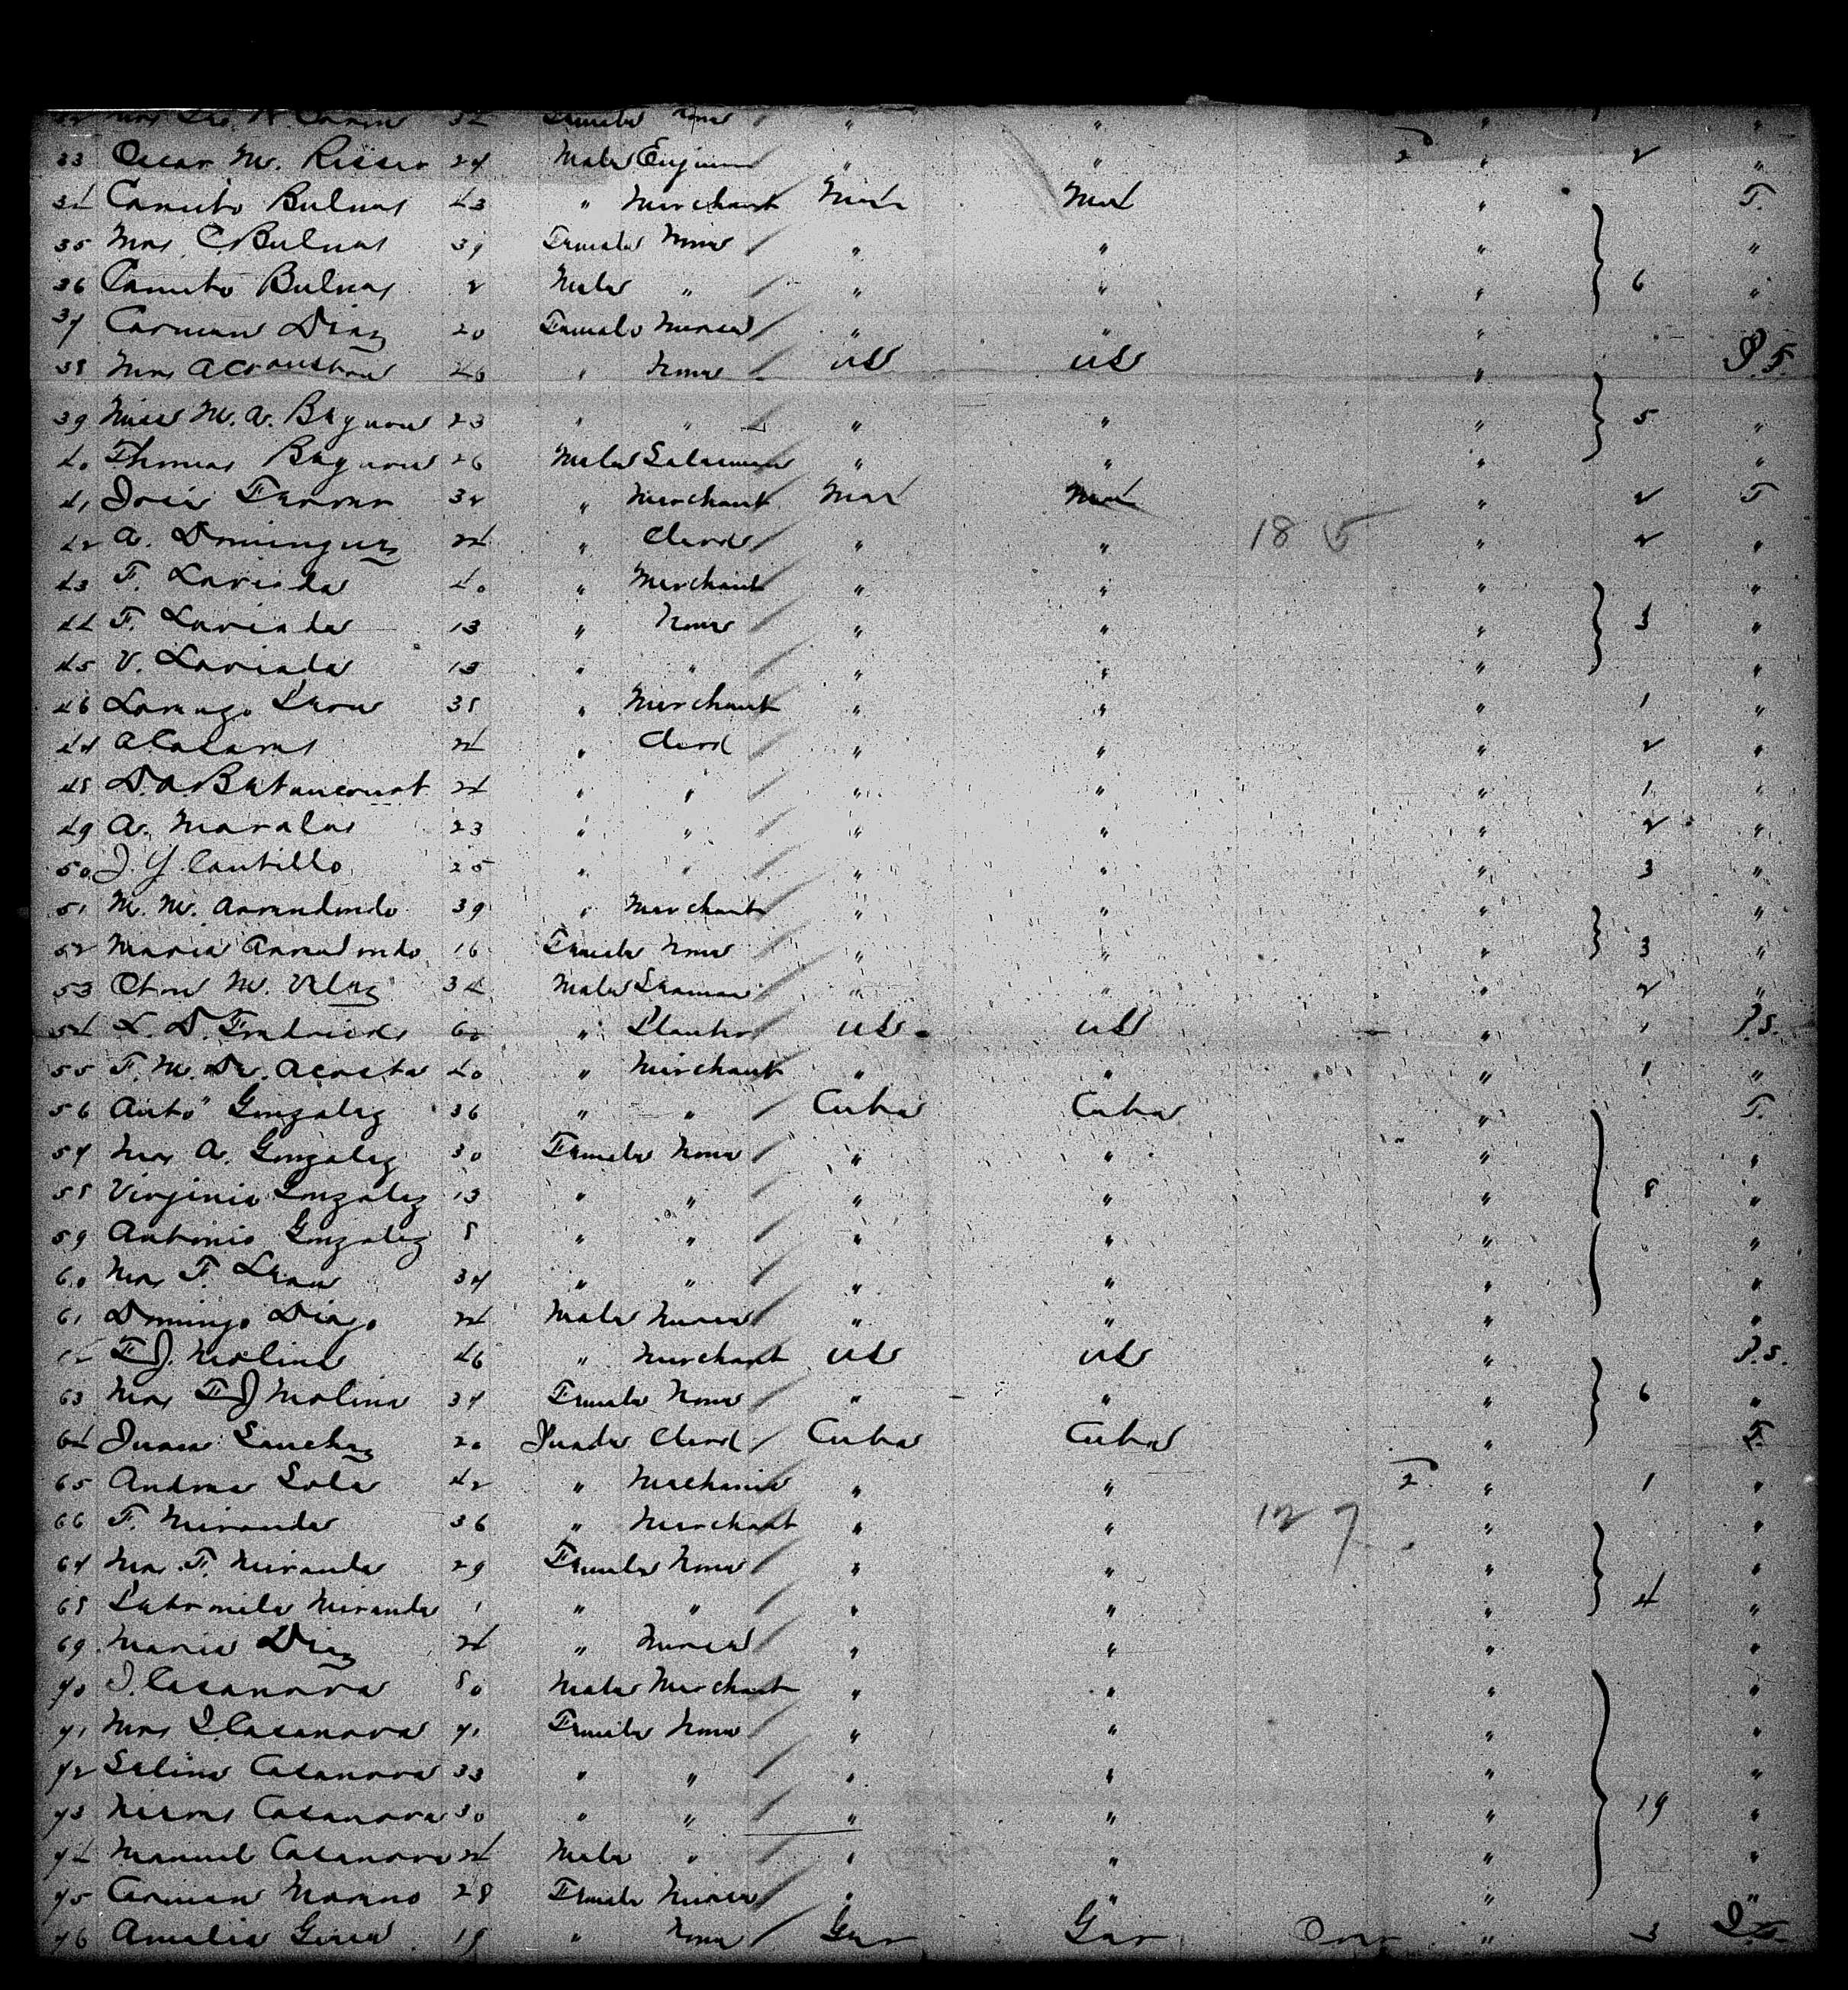 33 Oscar M. Risser 27 Male Engineer " " 2 " 2 "
34 Canuto Bulnes 43 " Merchant Mex Mex " T.
35 Mrs C. Bulnes 39 Female None " " " "
36 Canuto Bulnes 2 Male " " " " 6 "
37 Carmen Diaz 20 Female Nurse " " "
38 Mrs 46 " None US US " P.S.
39 Miss M. A. 23 " " " " " 5 "
40 Thomas 26 Male Salesman " " " "
41 José Ferrer 32 " Merchant Mex Mex " 2 T
42 A. Dominguez 24 " Clerk " " 18 5 " 2 "
43 F. Laviada 40 " Merchant " " " "
44 F. Laviada 13 " None " " " 3 "
45 V. Laviada 13 " " " " " "
46 Lorenzo 35 " Merchant " " " 1 "
47 A Casares 24 " Clerk " " " 2 "
48 D. A Betancourt 24 " " " " " 1 "
49 A. Morales 23 " " " " " 2 "
50 J. Y. Cantillo 25 " " " " " 3 "
51 M. M. Arredondo 39 " Merchant " " " "
52 Maria Arredondo 16 Female None " " " 3 "
53 M. Velez 34 Male Seaman " " " 2 "
54 L. D. Fredricks 60 " Planter US US " " P.S.
55 F. M. De Acosta 40 " Merchant " " " 1 "
56 Anto Gonzalez 36 " " Cuba Cuba " T.
57 Mrs A. Gonzalez 30 Female None " " " "
58 Virginia Gonzalez 13 " " " " " 8 "
59 Antonio Gonzalez 8 " " " " " "
60 Mrs F. 37 " " " " " "
61 Domingo Diago 24 Male Nurse " " " "
62 F J. Molina 46 " Merchant US US " P.S.
63 Mrs F J Molina 37 Female None " " " 6 "
64 Juan Sanchez 20 Clerk Cuba Cuba " T.
65 Andres Sola 42 " Mechanic " " 2 " 1 "
66 F. Miranda 36 " Merchant " " 12 7 " "
67 Mrs F. Miranda 29 Female None " " " "
68 Petronila Miranda 1 " " " " " 4 "
69 Maria Diaz 24 " Nurse " " " "
70 J. Casanova 80 Male Merchant " " " "
71 Mrs J. Casanova 71 Female None " " " "
72 Selina Casanova 33 " " " " " "
73 Casanova 30 " " " " " 19 "
74 Manuel Casanova 24 Male " " " " "
75 Carmen Moreno 28 Female Nurse " " " "
76 Amelia 18 " None Ger Ger " 3